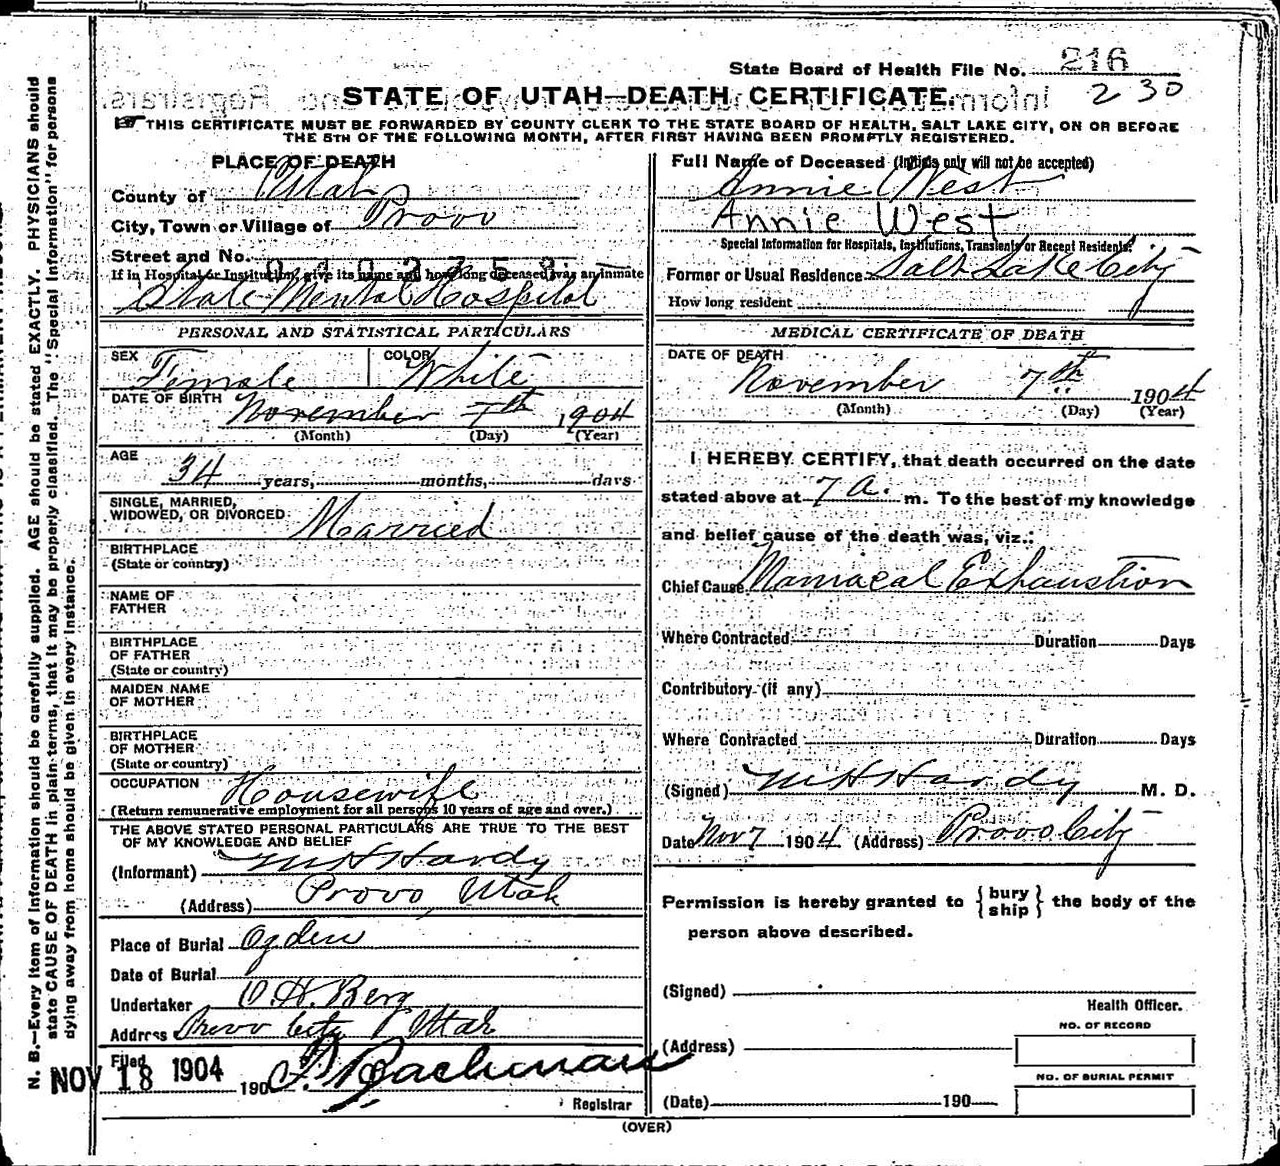 State Board of Health File No. 216
230
STATE OF UTAH—DEATH CERTIFICATE.
THIS CERTIFICATE MUST BE FORWARDED BY COUNTY CLERK TO THE STATE BOARD OF HEALTH, SALT LAKE CITY, ON OR BEFORE
THE 5TH OF THE FOLLOWING MONTH, AFTER FIRST HAVING BEEN PROMPTLY REGISTERED.
PLACE OF DEATH
County of Utah
City, Town or Village of Provo
Street and No.
If in Hospital or Institution, give its name and how long deceased was an inmate
State Mental Hospital
PERSONAL AND STATISTICAL PARTICULARS
SEX Female COLOR White
DATE OF BIRTH November 7th 1904
(Month) (Day) (Year)
AGE
34 years, months, days
SINGLE, MARRIED,
WIDOWED, OR DIVORCED Married
BIRTHPLACE
(State or country)
NAME OF
FATHER
BIRTHPLACE
OF FATHER
(State or country)
MAIDEN NAME
OF MOTHER
BIRTHPLACE
OF MOTHER
(State or country)
OCCUPATION Housewife
(Return remunerative employment for all persons 10 years of age and over.)
THE ABOVE STATED PERSONAL PARTICULARS ARE TRUE TO THE BEST
OF MY KNOWLEDGE AND BELIEF
(Informant) M H Hardy
(Address) Provo, Utah
Place of Burial Ogden
Date of Burial
Undertaker O. H. Berg
Address Provo City Utah
Filed
NOV 18 1904 190
Registrar
Full Name of Deceased (Initials only will not be accepted)
Annie West
Annie West
Special Information for Hospitals, Institutions, Transients or Recept Residents:
Former or Usual Residence Salt Lake City
How long resident
MEDICAL CERTIFICATE OF DEATH
DATE OF DEATH
November 7th 1904
(Month) (Day) (Year)
I HEREBY CERTIFY, that death occurred on the date
stated above at 7 a. m. To the best of my knowledge
and belief cause of the death was, viz.:
Chief Cause Maniacal Exhaustion
Where Contracted Duration Days
Contributory (if any)
Where Contracted Duration Days
(Signed) M H Hardy M. D.
Date Nov 7 1904 (Address) Provo City
Permission is hereby granted to {bury
ship} the body of the
person above described.
(Signed)
Health Officer.
NO. OF RECORD
(Address)
NO. OF BURIAL PERMIT
(Date) 190
(OVER)
N. B.—Every item of information should be carefully supplied. AGE should be stated EXACTLY. PHYSICIANS should
state CAUSE OF DEATH in plain terms, that it may be properly classified. The "Special Information" for persons
dying away from home should be given in every instance.